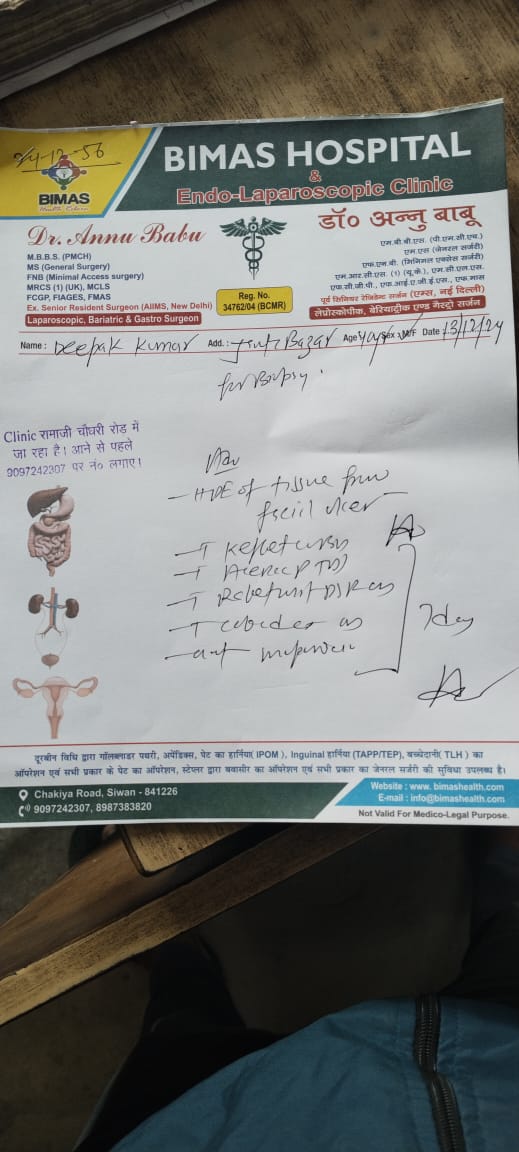 24-12-56
BIMAS
BIMAS HOSPITAL
&
Endo-Laparoscopic Clinic
Dr. Annu Babu
M.B.B.S. (PMCH)
MS (General Surgery)
FNB (Minimal Access surgery)
MRCS (1) (UK), MCLS
FCGP, FIAGES, FMAS
Ex. Senior Resident Surgeon (AIIMS, New Delhi)
Laparoscopic, Bariatric & Gastro Surgeon
Reg. No.
34762/04 (BCMR)
डॉ० अन्नु बाबू
एम.बी.बी.एस. (पी.एम.सी.एच.)
एम.एस (जेनरल सर्जरी)
एफ.एन.बी. (मिनिमल एक्सेस सर्जरी)
एम.आर.सी.एस. (1) (यू.के.), एम.सी.एल.एस.
एफ.सी.जी.पी., एफ.आई.ए.जी.ई.एस., एफ.मास
पूर्व सिनियर रेजिडेन्ट सर्जन (एम्स, नई दिल्ली)
लेप्रोस्कोपीक, बेरियाट्रीक एण्ड गैस्ट्रो सर्जन
Name : Deepak Kumar Add.: Bazar Age Sex : M/F Date 13/12/24
for Biopsy.
Clinic रामाजी चौधरी रोड में
जा रहा है। आने से पहले
9097242307 पर नं० लगाए।
Adv
- HPE of tissue from
facial ulcer
- T
- T
- T
- T
-
7 day
दूरबीन विधि द्वारा गॉलब्लाडर पथरी, अपेंडिक्स, पेट का हार्निया( IPOM ), Inguinal हार्निया (TAPP/TEP), बच्चेदानी( TLH ) का
ऑपरेशन एवं सभी प्रकार के पेट का ऑपरेशन, स्टेप्लर द्वारा बवासीर का ऑपरेशन एवं सभी प्रकार का जेनरल सर्जरी की सुविधा उपलब्ध है।
Chakiya Road, Siwan - 841226
9097242307, 8987383820
Website : www. bimashealth.com
E-mail : info@bimashealth.com
Not Valid For Medico-Legal Purpose.